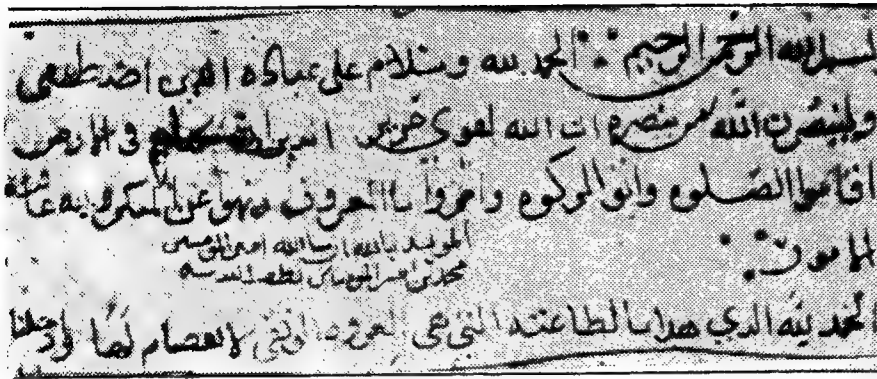 بسم الله الرحمن الرحيم الحمد لله وسلام على عباده الذين اصطفى
ولينصرن الله من ينصره ان الله لقوي عزيز الذين ان مكناهم في الارض
اقاموا الصلوه واتوا الزكوه وامروا بالمعروف ونهوا عن المنكر ولله عاقبة
الامور
المويد بالله ان شا الله امير المومنين
محمد بن امير المومنين لطف الله به
الحمد لله الذي هدانا لطاعته التي هي العروه الوثقى لا انفصام لها